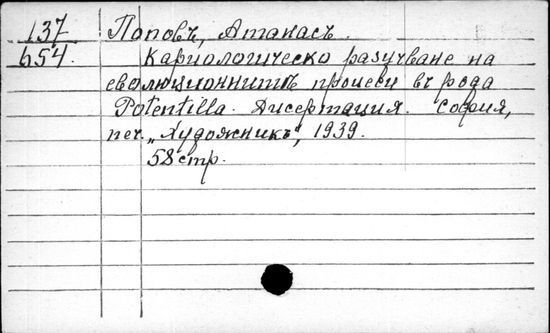 137 Поповъ, Атанасъ.
654. Кариологическо разучване на
еволюционнитѣ процеси въ рода
Potentilla. Дисертация. София,
печ. „Художникъ“, 1939.
58 стр.